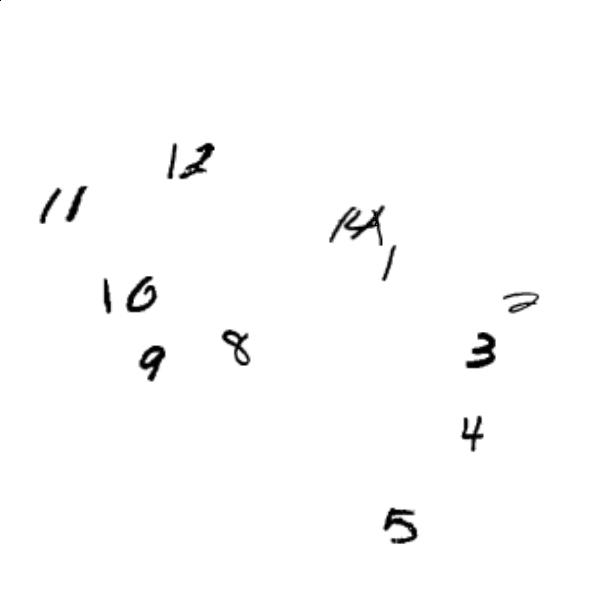 12
11
1
10
2
9
8
3
4
5